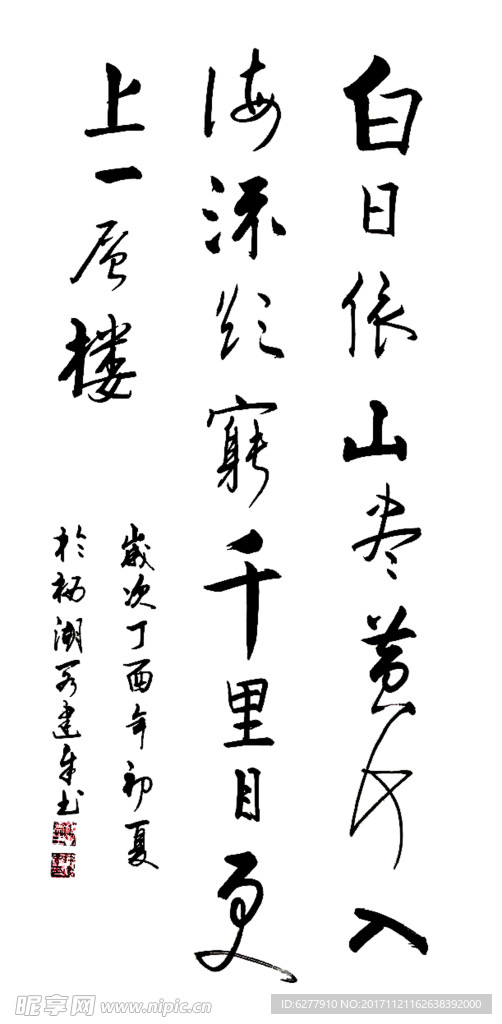 白日依山尽黄河入
海流欲穷千里目更
上一层楼
岁次丁酉年初夏
昵享网 www.nipic.cn
ID:6277910 NO:20171121162638392000